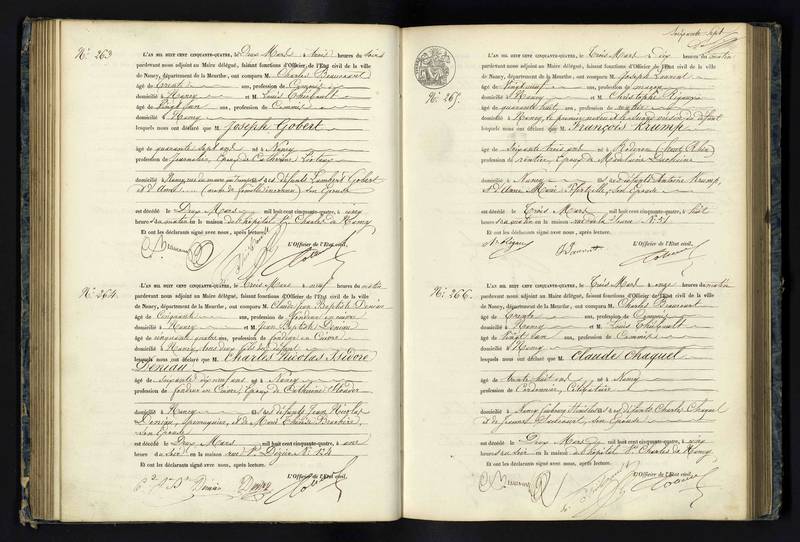 N.º 263
L'AN MIL HUIT CENT CINQUANTE-QUATRE, le Deux Mars à trois heures du soir
pardevant nous adjoint au Maire délégué, faisant fonctions d'Officier de l'Etat civil de la ville
de Nancy, département de la Meurthe, ont comparu M. Charles Beaucourt
âgé de trente ans, profession de Commis
domicilié à Nancy et M. Louis Thiébault
âgé de vingt un ans, profession de Commis
domicilié à Nancy
lesquels nous ont déclaré que M. Joseph Gobert
âgé de quarante sept ans né à Nancy
profession de Journalier, Epoux de Catherine
domicilié à Nancy, rue de &s des défunts Lambert Gobert
et d'Anne (nom de famille inconnu) son Epouse
est décédé le Deux Mars mil huit cent cinquante-quatre, à cinq
heures du matin en la maison de l'hôpital St Charles de Nancy
Et ont les déclarants signé avec nous, après lecture.
L'Officier de l'Etat civil,
N.º 264.
L'AN MIL HUIT CENT CINQUANTE-QUATRE, le trois Mars à neuf heures du matin
pardevant nous adjoint au Maire délégué, faisant fonctions d'Officier de l'Etat civil de la ville
de Nancy, département de la Meurthe, ont comparu M. Claude Jean Baptiste Deniau
âgé de Cinquante ans, profession de fondeur en cuivre
domicilié à Nancy et M. Jean Baptiste Deniau
âgé de ans, profession de fondeur en Cuivre
domicilié à Nancy, tous deux fils du défunt
lesquels nous ont déclaré que M. Charles Nicolas Isidore
Deniau
âgé de Soixante dix neuf ans né à Nancy
profession de fondeur en Cuivre, Epoux de Catherine
domicilié à Nancy des défunts Jean Nicolas
Deniau, et de Marie Claude
son Epouse
est décédé le Deux Mars mil huit cent cinquante-quatre, à une
heure du soir en la maison rue St Dizier N.º
Et ont les déclarants signé avec nous, après lecture.
L'Officier de l'Etat civil,
Deniau Deniau
Soixante sept
N.º 265.
L'AN MIL HUIT CENT CINQUANTE-QUATRE, le Trois Mars à Dix heures du matin
pardevant nous adjoint au Maire délégué, faisant fonctions d'Officier de l'Etat civil de la ville
de Nancy, département de la Meurthe, ont comparu M. Joseph Laurent
âgé de Vingt neuf ans, profession de maçon
domicilié à Nancy et M. Christophe
âgé de quarante huit ans, profession de
domicilié à Nancy, le premier neveu et le second voisin du défunt
lesquels nous ont déclaré que M. François Krump
âgé de Soixante trois ans né à (haut Rhin)
profession de rentier, Epoux de Madeleine
domicilié à Nancy des défunts Antoine Krump,
et d'Anne Marie son Epouse
est décédé le Trois Mars mil huit cent cinquante-quatre, à huit
heures du matin en la maison
Et ont les déclarants signé avec nous, après lecture.
L'Officier de l'Etat civil,
Laurent
N.º 266.
L'AN MIL HUIT CENT CINQUANTE-QUATRE, le Trois Mars à onze heures du matin
pardevant nous adjoint au Maire délégué, faisant fonctions d'Officier de l'Etat civil de la ville
de Nancy, département de la Meurthe, ont comparu M. Charles Beaucourt
âgé de trente ans, profession de Commis
domicilié à Nancy et M. Louis Thiébault
âgé de vingt un ans, profession de Commis
domicilié à Nancy
lesquels nous ont déclaré que M. Claude Chaquel
âgé de trente huit ans né à Nancy
profession de Cordonnier, Célibataire
domicilié à Nancy faubourg des défunts Charles Chaquel
et de son Epouse
est décédé le Deux Mars mil huit cent cinquante-quatre, à cinq
heures du soir en la maison de l'hôpital St Charles de Nancy
Et ont les déclarants signé avec nous, après lecture.
L'Officier de l'Etat civil,